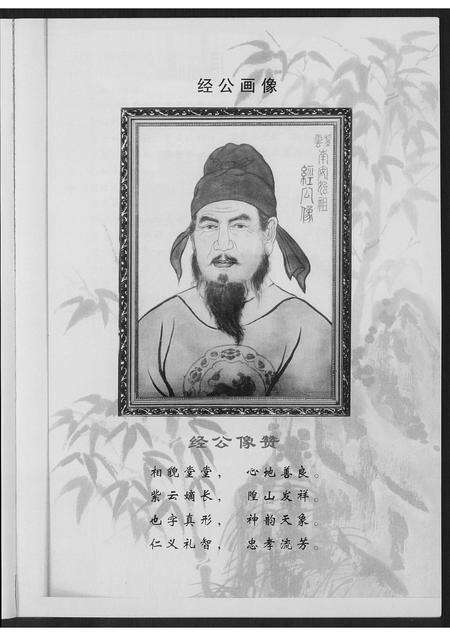 经公画像
南安始祖
經公像
经公像赞
相貌堂堂， 心地善良。
紫云嫡长， 隍山发祥。
也字真形， 神韵天象。
仁义礼智， 忠孝流芳。